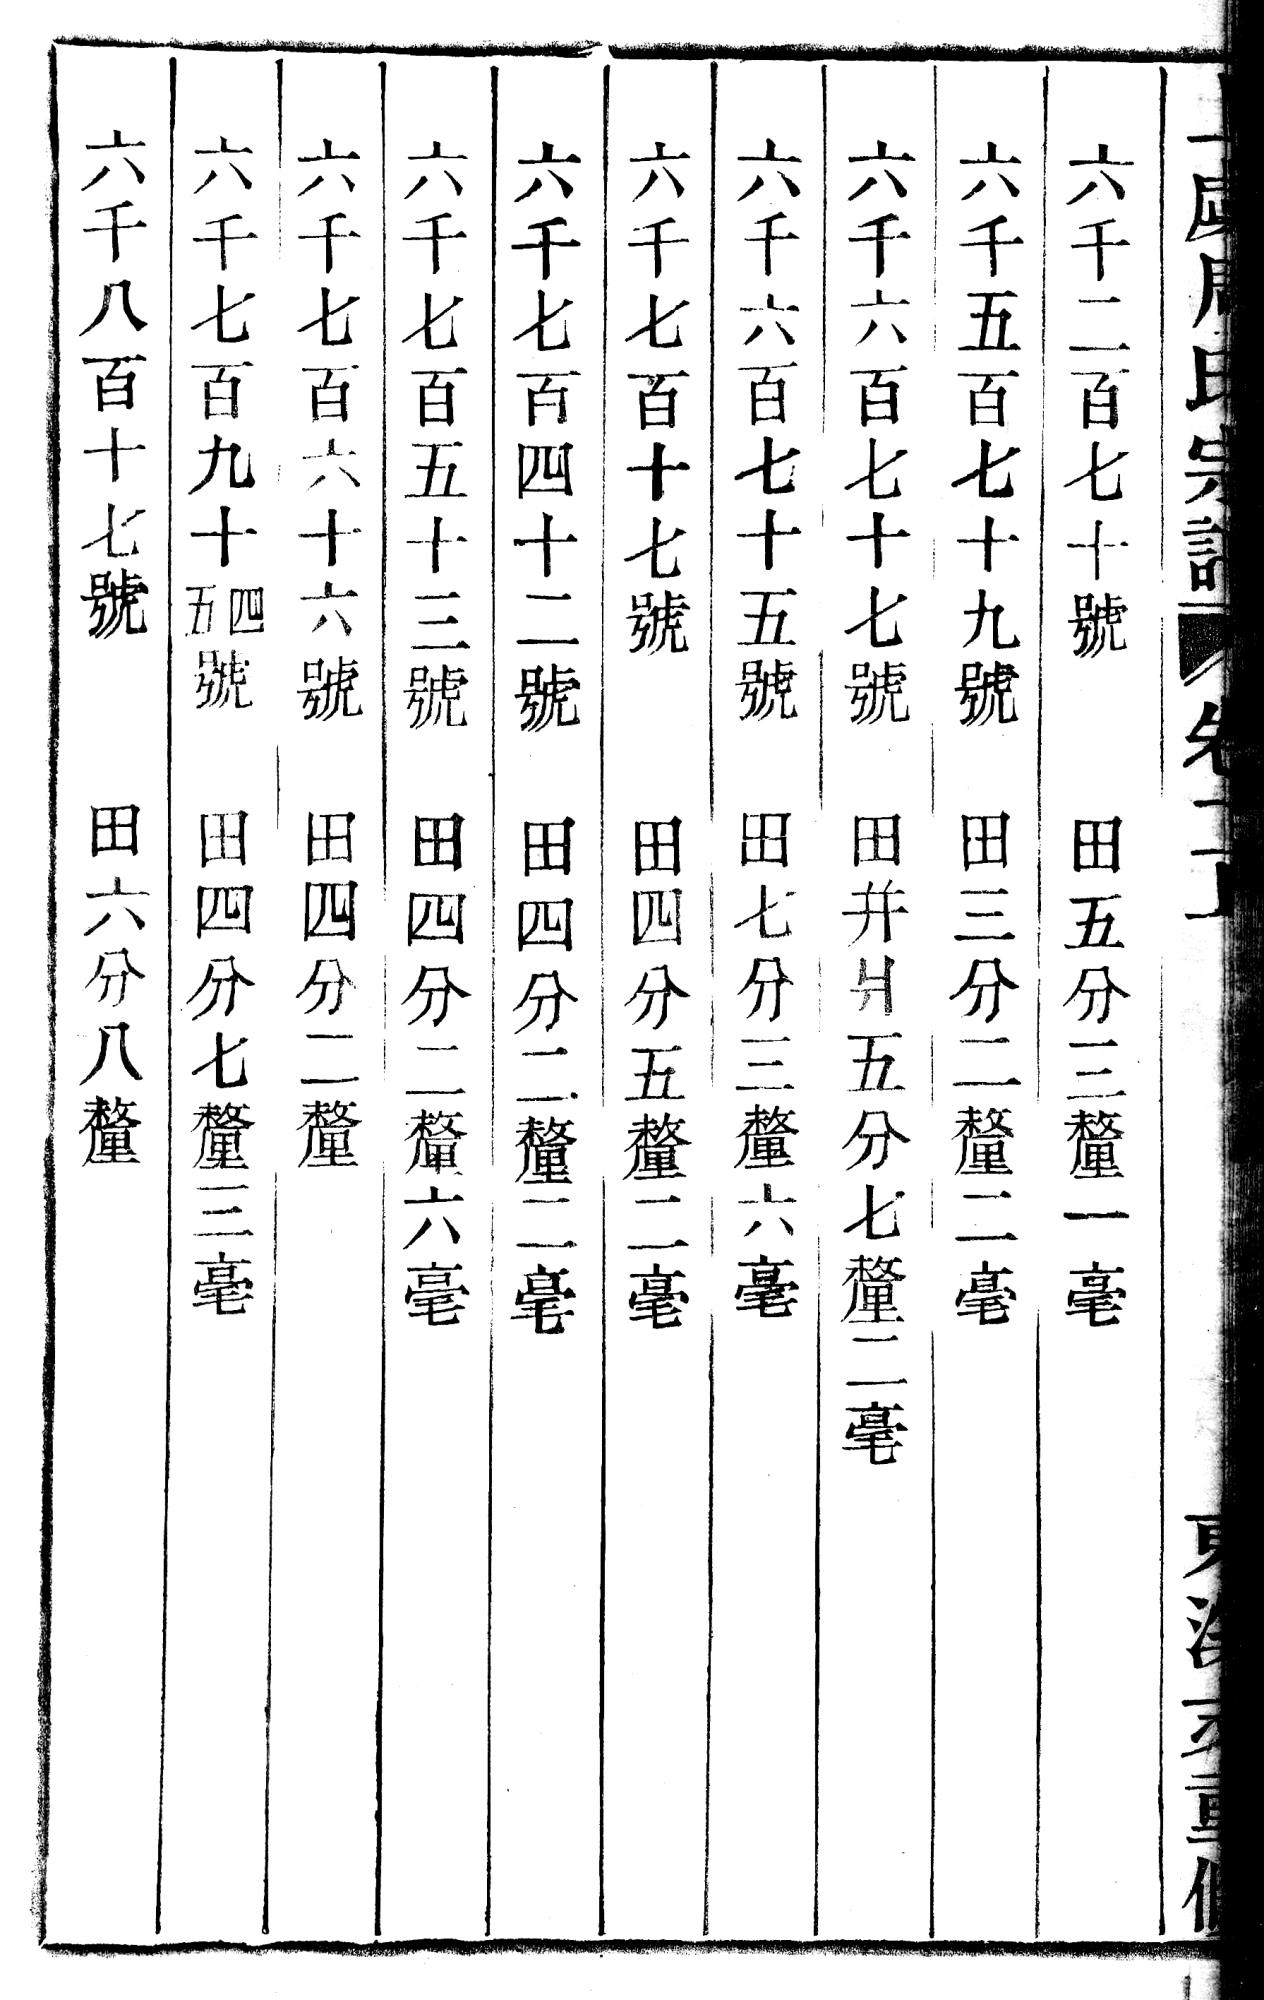 六千二百七十號　田五分三釐一毫
六千五百七十九號　田三分二釐二毫
六千六百七十七號　田并爿五分七釐二毫
六千六百七十五號　田七分三釐六毫
六千七百十七號　田四分五釐二毫
六千七百四十二號　田四分二釐二毫
六千七百五十三號　田四分二釐六毫
六千七百六十六號　田四分二釐
六千七百九十四五號　田四分七釐三毫
六千八百十七號　田六分八釐